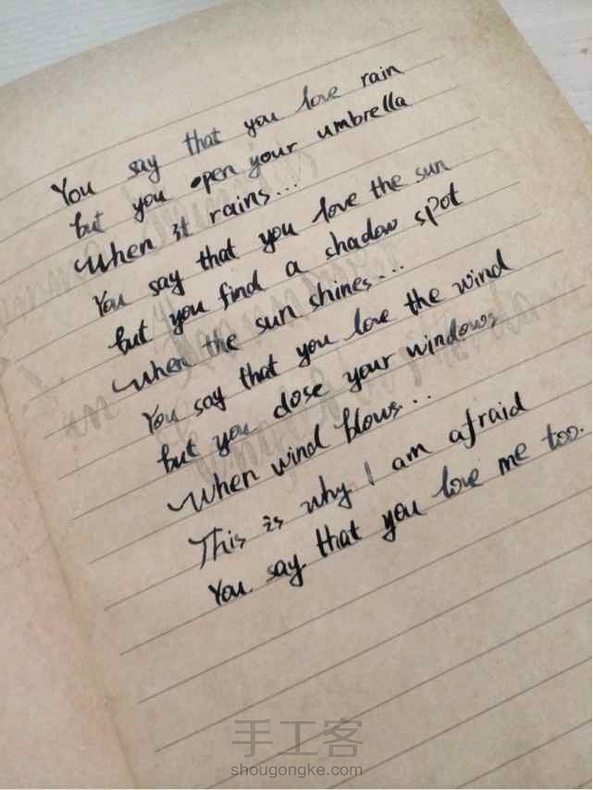 You say that you love rain
but you open your umbrella
when it rains...
You say that you love the sun
but you find a shadow spot
when the sun shines...
You say that you love the wind
but you close your windows
When wind blows...
This is why I am afraid
You say that you love me too.
手工客
shougongke.com